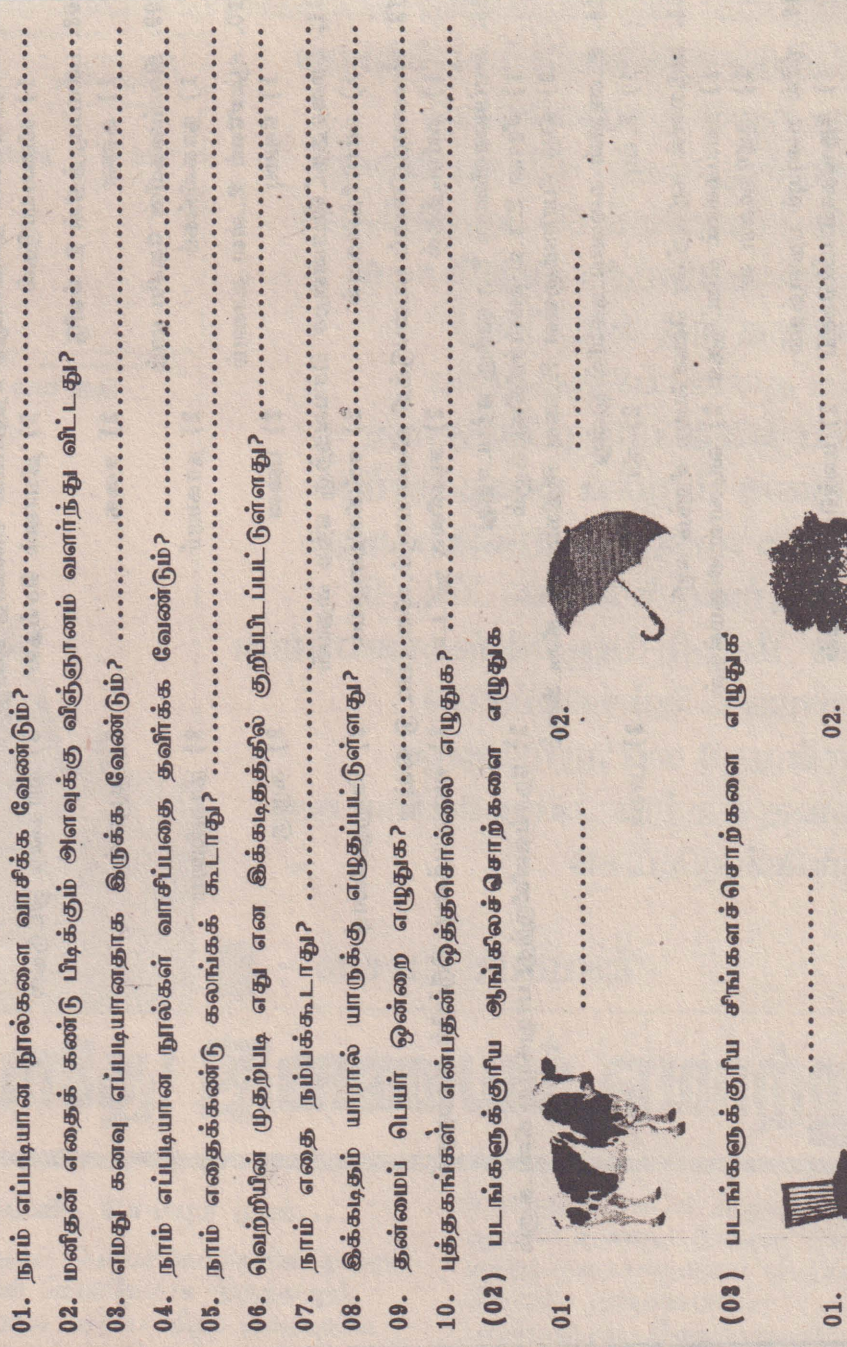 01. நாம் எப்படியான நூல்களை வாசிக்க வேண்டும்? ........................................
02. மனிதன் எதைக் கண்டு பிடிக்கும் அளவுக்கு விஞ்ஞானம் வளர்ந்து விட்டது? ........................................
03. எமது கனவு எப்படியானதாக இருக்க வேண்டும்? ........................................
04. நாம் எப்படியான நூல்கள் வாசிப்பதை தவிர்க்க வேண்டும்? ........................................
05. நாம் எதைக்கண்டு கலங்கக் கூடாது? ........................................
06. வெற்றியின் முதற்படி எது என இக்கடிதத்தில் குறிப்பிடப்பட்டுள்ளது? ........................................
07. நாம் எதை நம்பக்கூடாது? ........................................
08. இக்கடிதம் யாரால் யாருக்கு எழுதப்பட்டுள்ளது? ........................................
09. தன்மைப் பெயர் ஒன்றை எழுதுக? ........................................
10. புத்தகங்கள் என்பதன் ஒத்தசொல்லை எழுதுக? ........................................
(02) படங்களுக்குரிய ஆங்கிலச்சொற்களை எழுதுக
01. .................... 02. ....................
(03) படங்களுக்குரிய சிங்களச்சொற்களை எழுதுக
01. .................... 02. ....................